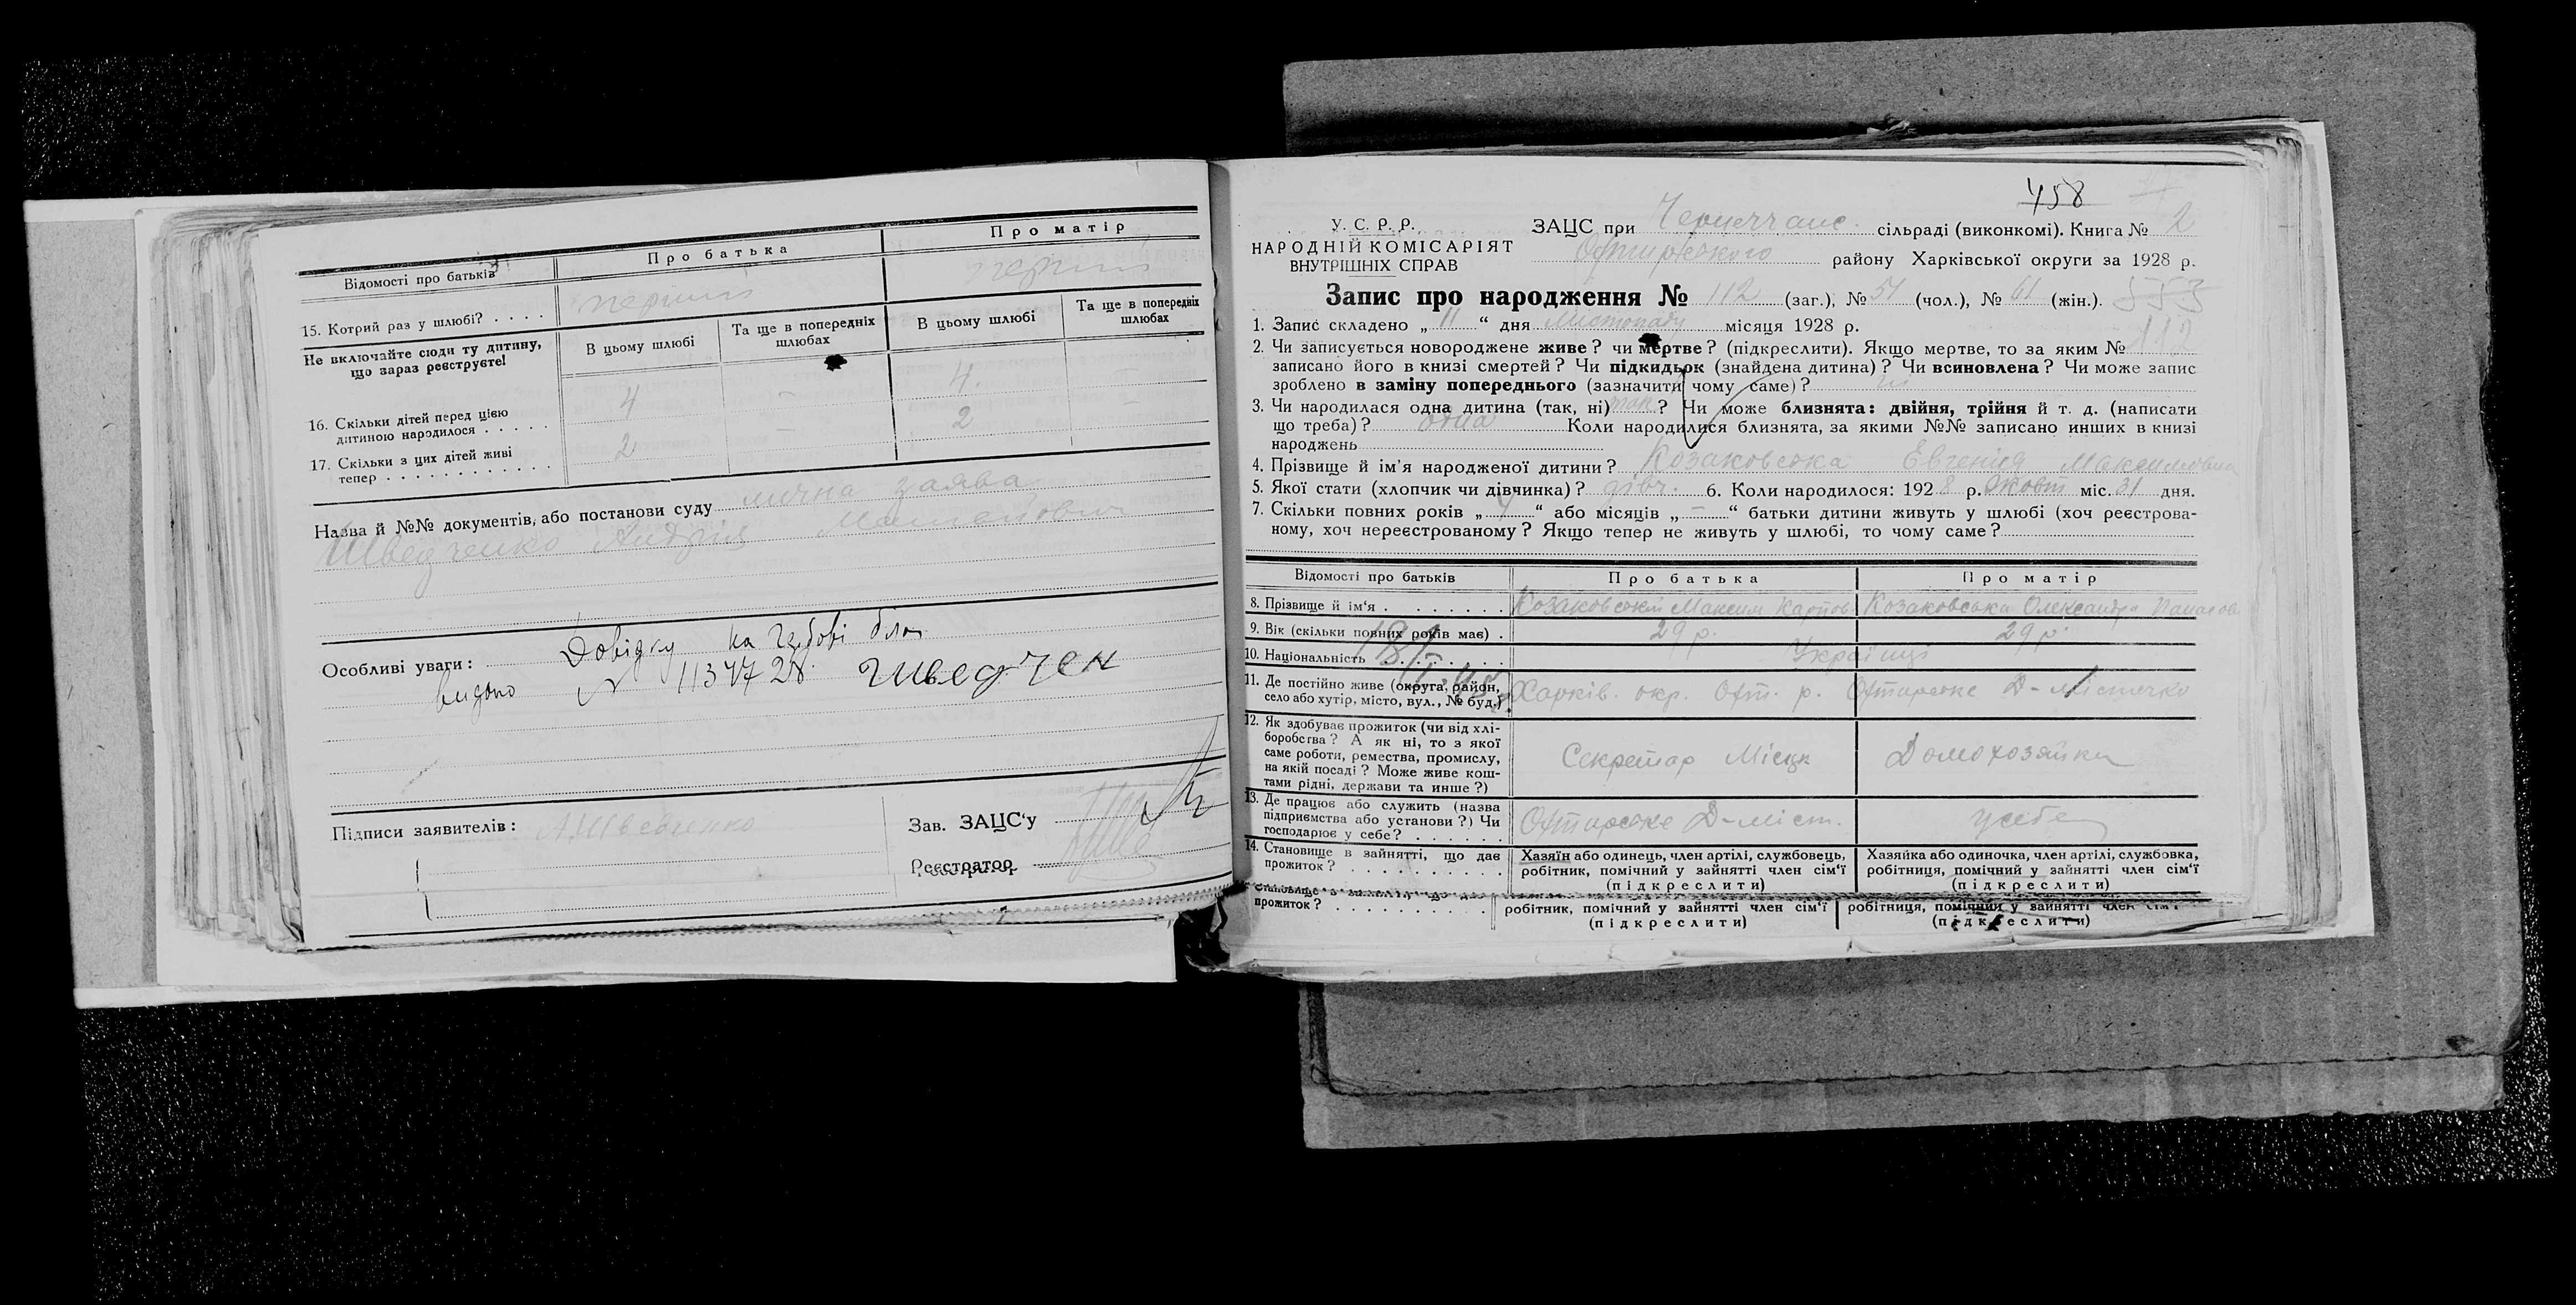 Відомості про батьків
Про батька
Про матір
15. Котрий раз у шлюбі? . . . .
перший
перший
Не включайте сюди ту дитину,
що зараз реєструєте!
В цьому шлюбі
Та ще в попередніх
шлюбах
В цьому шлюбі
Та ще в попередніх
шлюбах
16. Скільки дітей перед цією
дитиною народилося . . . . .
4
—
4.
—
17. Скільки з цих дітей живі
тепер . . . . . . . . . . . .
2
—
2
—
Назва й №№ документів, або постанови суду лична заява
Шведченко Андрія
Особливі уваги:
Довідку на
видано № 113 Шведчен
Підписи заявителів:
Зав. ЗАЦС'у
Реєстратор
458
У. С. Р. Р.
НАРОДНІЙ КОМІСАРІЯТ
ВНУТРІШНІХ СПРАВ
ЗАЦС при Чернеччанс. сільраді (виконкомі). Книга № 2
Охтирського району Харківської округи за 1928 р.
Запис про народження № 112 (заг.), № 51 (чол.), № 61 (жін.). 553
1. Запис складено „ 11 “ дня Листопада місяця 1928 р.
112
2. Чи записується новороджене живе? чи мертве? (підкреслити). Якщо мертве, то за яким №
записано його в книзі смертей? Чи підкидьок (знайдена дитина)? Чи всиновлена? Чи може запис
зроблено в заміну попереднього (зазначити чому саме)? ні
3. Чи народилася одна дитина (так, ні) так? Чи може близнята: двійня, трійня й т. д. (написати
що треба)? одна Коли народилися близнята, за якими №№ записано инших в книзі
народжень
4. Прізвище й ім'я народженої дитини? Козаковська Евгенія Максимовна
5. Якої стати (хлопчик чи дівчинка)? дівч. 6. Коли народилося: 1928 р. Жовт міс. 31 дня.
7. Скільки повних років „ 4 “ або місяців „ — “ батьки дитини живуть у шлюбі (хоч реєстрова-
ному, хоч нереєстрованому? Якщо тепер не живуть у шлюбі, то чому саме?
Відомості про батьків
Про батька
Про матір
8. Прізвище й ім'я . . . . . . . .
Козаковський Максим Карпов
Козаковська Олександра Панасов
9. Вік (скільки повних років має) .
29 р.
29 р.
10. Національність . . . . . . . .
Українці
11. Де постійно живе (округа, район,
село або хутір, місто, вул., № буд.)
Харків. окр. Охт. р. Охтирське Д-містечко
12. Як здобуває прожиток (чи від хлі-
боробства? А як ні, то з якої
саме роботи, ремества, промислу,
на якій посаді? Може живе кош-
тами рідні, держави та инше?)
Секретар Місцк
Домохозяйка
13. Де працює або служить (назва
підприємства або установи?) Чи
господарює у себе? . . . . . .
Охтирське Д-міст.
у себе
14. Становище в зайнятті, що дає
прожиток? . . . . . . . . . .
Хазяїн або одинець, член артілі, службовець,
робітник, помічний у зайнятті член сім'ї
(підкреслити)
Хазяйка або одиночка, член артілі, службовка,
робітниця, помічний у зайнятті член сім'ї
(підкреслити)
прожиток? . . . . . . . . . .
робітник, помічний у зайнятті член сім'ї
(підкреслити)
робітниця, помічний у зайнятті член сім'ї
(підкреслити)